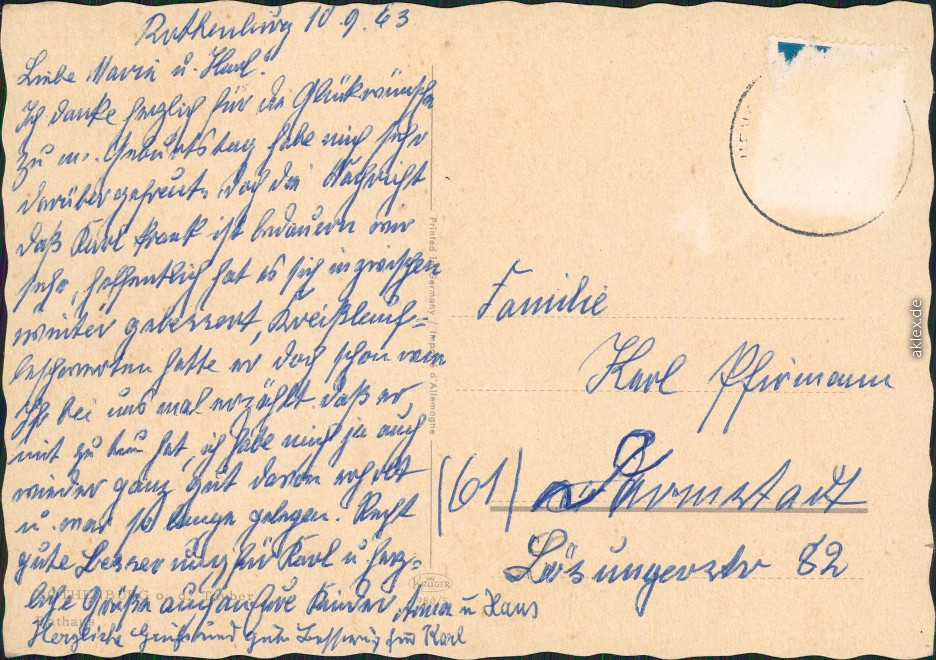 Rothenburg 10.9.63
Liebe Marie u. Karl!
Ich danke herzlich für die Glückwünsche
zu m. Geburtstag habe mich sehr
darüber gefreut, doch die Nachricht
daß Karl krank ist bedauern wir
sehr, hoffentlich hat es sich inzwischen
wieder gebessert, Kreißlauf-
beschwerten hatte er doch schon wenn
Ihr bei uns mal erzählt daß er
mit zu tun hat, ich habe mich ja auch
wieder ganz gut davon erholt
u. war so lange gelegen. Recht
gute Besserung für Karl u. herz-
liche Grüße auch an Eure Kinder Anna u Hans
Herzliche Grüße und gute Besserung für Karl
ROTHENBURG o. d. Tauber
Rathaus
Printed in Germany / Imprimé d'Allemagne
KRÜGER
Familie
Karl Pfirmann
(61) Darmstadt
Lösungerstr 82
aklex.de